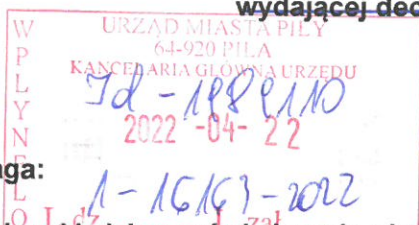 wydającej dec
WPŁYNĘŁO
URZĄD MIASTA PIŁY
64-920 PIŁA
KANCELARIA GŁÓWNA URZĘDU
Id - 1989110
2022 -04- 22
aga:
1-16163-2022
L.dz. zał